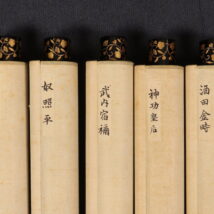 奴照平
武内宿禰
神功皇后
酒田金時